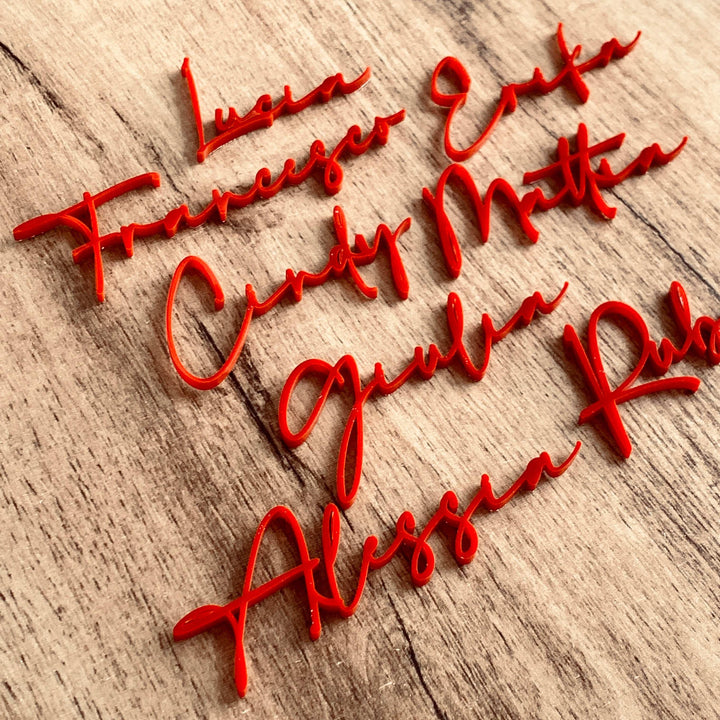 Lucia
Erika
Francesco
Mattia
Cindy
Giulia
Alessia